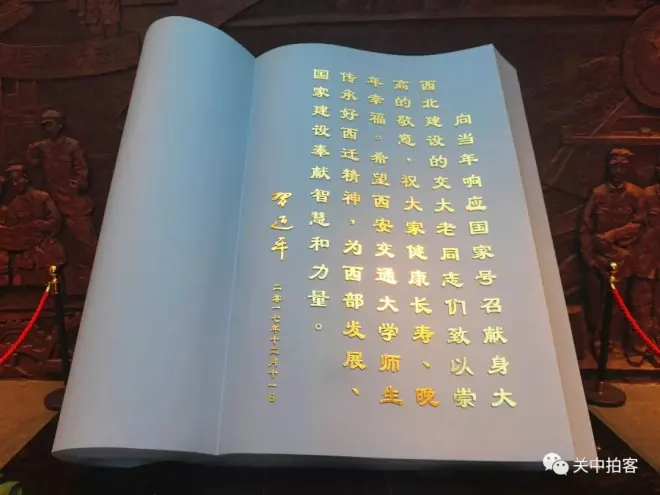 向当年响应国家号召献身大
西北建设的交大老同志们致以崇
高的敬意，祝大家健康长寿、晚
年幸福。希望西安交通大学师生
传承好西迁精神，为西部发展、
国家建设奉献智慧和力量。
习近平
二零一七年十二月十一日
关中拍客